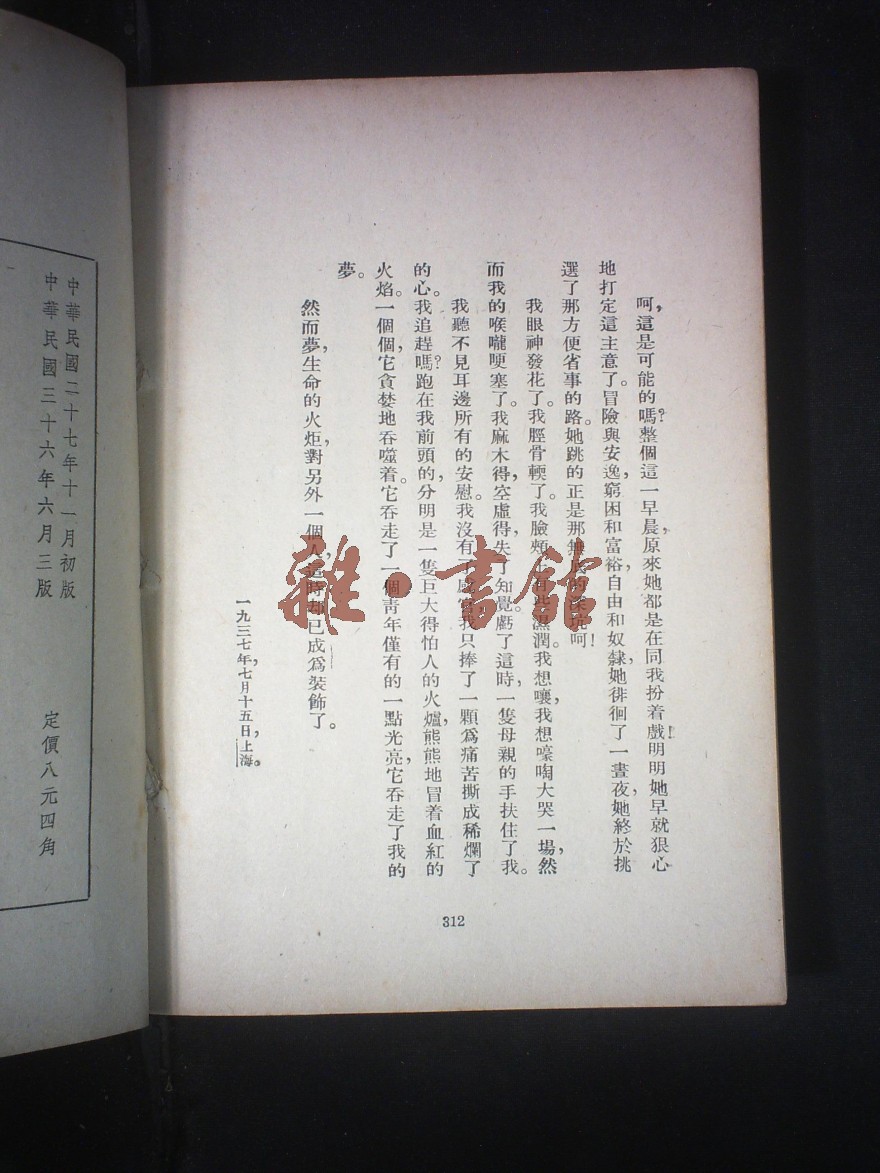 呵，這是可能的嗎？整個這一早晨，原來她都是在同我扮着戲！明明她早就狠心
地打定這主意了。冒險與安逸，窮困和富裕，自由和奴隸，她徘徊了一晝夜，她終於挑
選了那方便省事的路。她跳的正是那無的深坑呵！
我眼神發花了。我脛骨輭了。我臉頰上有些濕潤。我想嚷，我想嚎啕大哭一場，然
而我的喉嚨哽塞了。我麻木得，空虛得，失了知覺。虧了這時，一隻母親的手扶住了我。
我聽不見耳邊所有的安慰。我沒有了感官，我只捧了一顆爲痛苦撕成稀爛了
的心。我追趕嗎？跑在我前頭的，分明是一隻巨大得怕人的火爐，熊熊地冒着血紅的
火焰。一個個，它貪婪地吞噬着。它吞走了一個青年僅有的一點光亮，它吞走了我的
夢。
然而夢，生命的火炬，對另外一個人，這時却已成爲裝飾了。
一九三七年，七月十五日，上海。
312
中華民國二十七年十一月初版
中華民國三十六年六月三版
定價八元四角
雜·書館